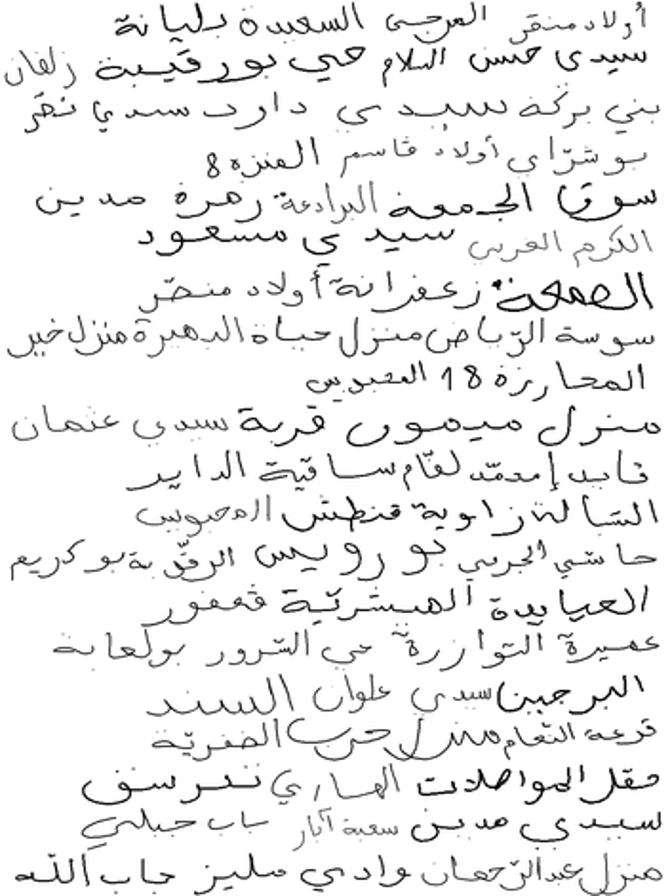 أولاد منصر المرجى السعيدة بليانة
سيدي حسن السلام حي بورقيبة زلفان
بني بركة سيدي داود سيدي نصر
بوشرّاي أولاد قاسم المنزه 8
سوق الجمعة البرادعة زهرة مدين
الكرم الغربي سيدي مسعود
الصمعة زعفرانة أولاد منصّر
سوسة الرّياض منزل حياة الدهيرة منزل خير
المحارزة 18
منزل ميمون قرية سيدي عثمان
قايد إمحمّد لقّام ساقية الداير
الشالة زاوية قنطش المحبوس
حاشي الجربي بورويس الرقّبة بوكريم
العيايدة الهيشريّة قعفور
عميرة التوازرة حي السّرور بولعابة
البرجين سيدي علوان السند
ترعة النّعام منزل حرب الصفريّة
مفترق المواصلات الهاري تبرسق
سيدي مدين سعبة آبار باب جبلي
منزل عبد الرّحمان وادي مليز جاب الله